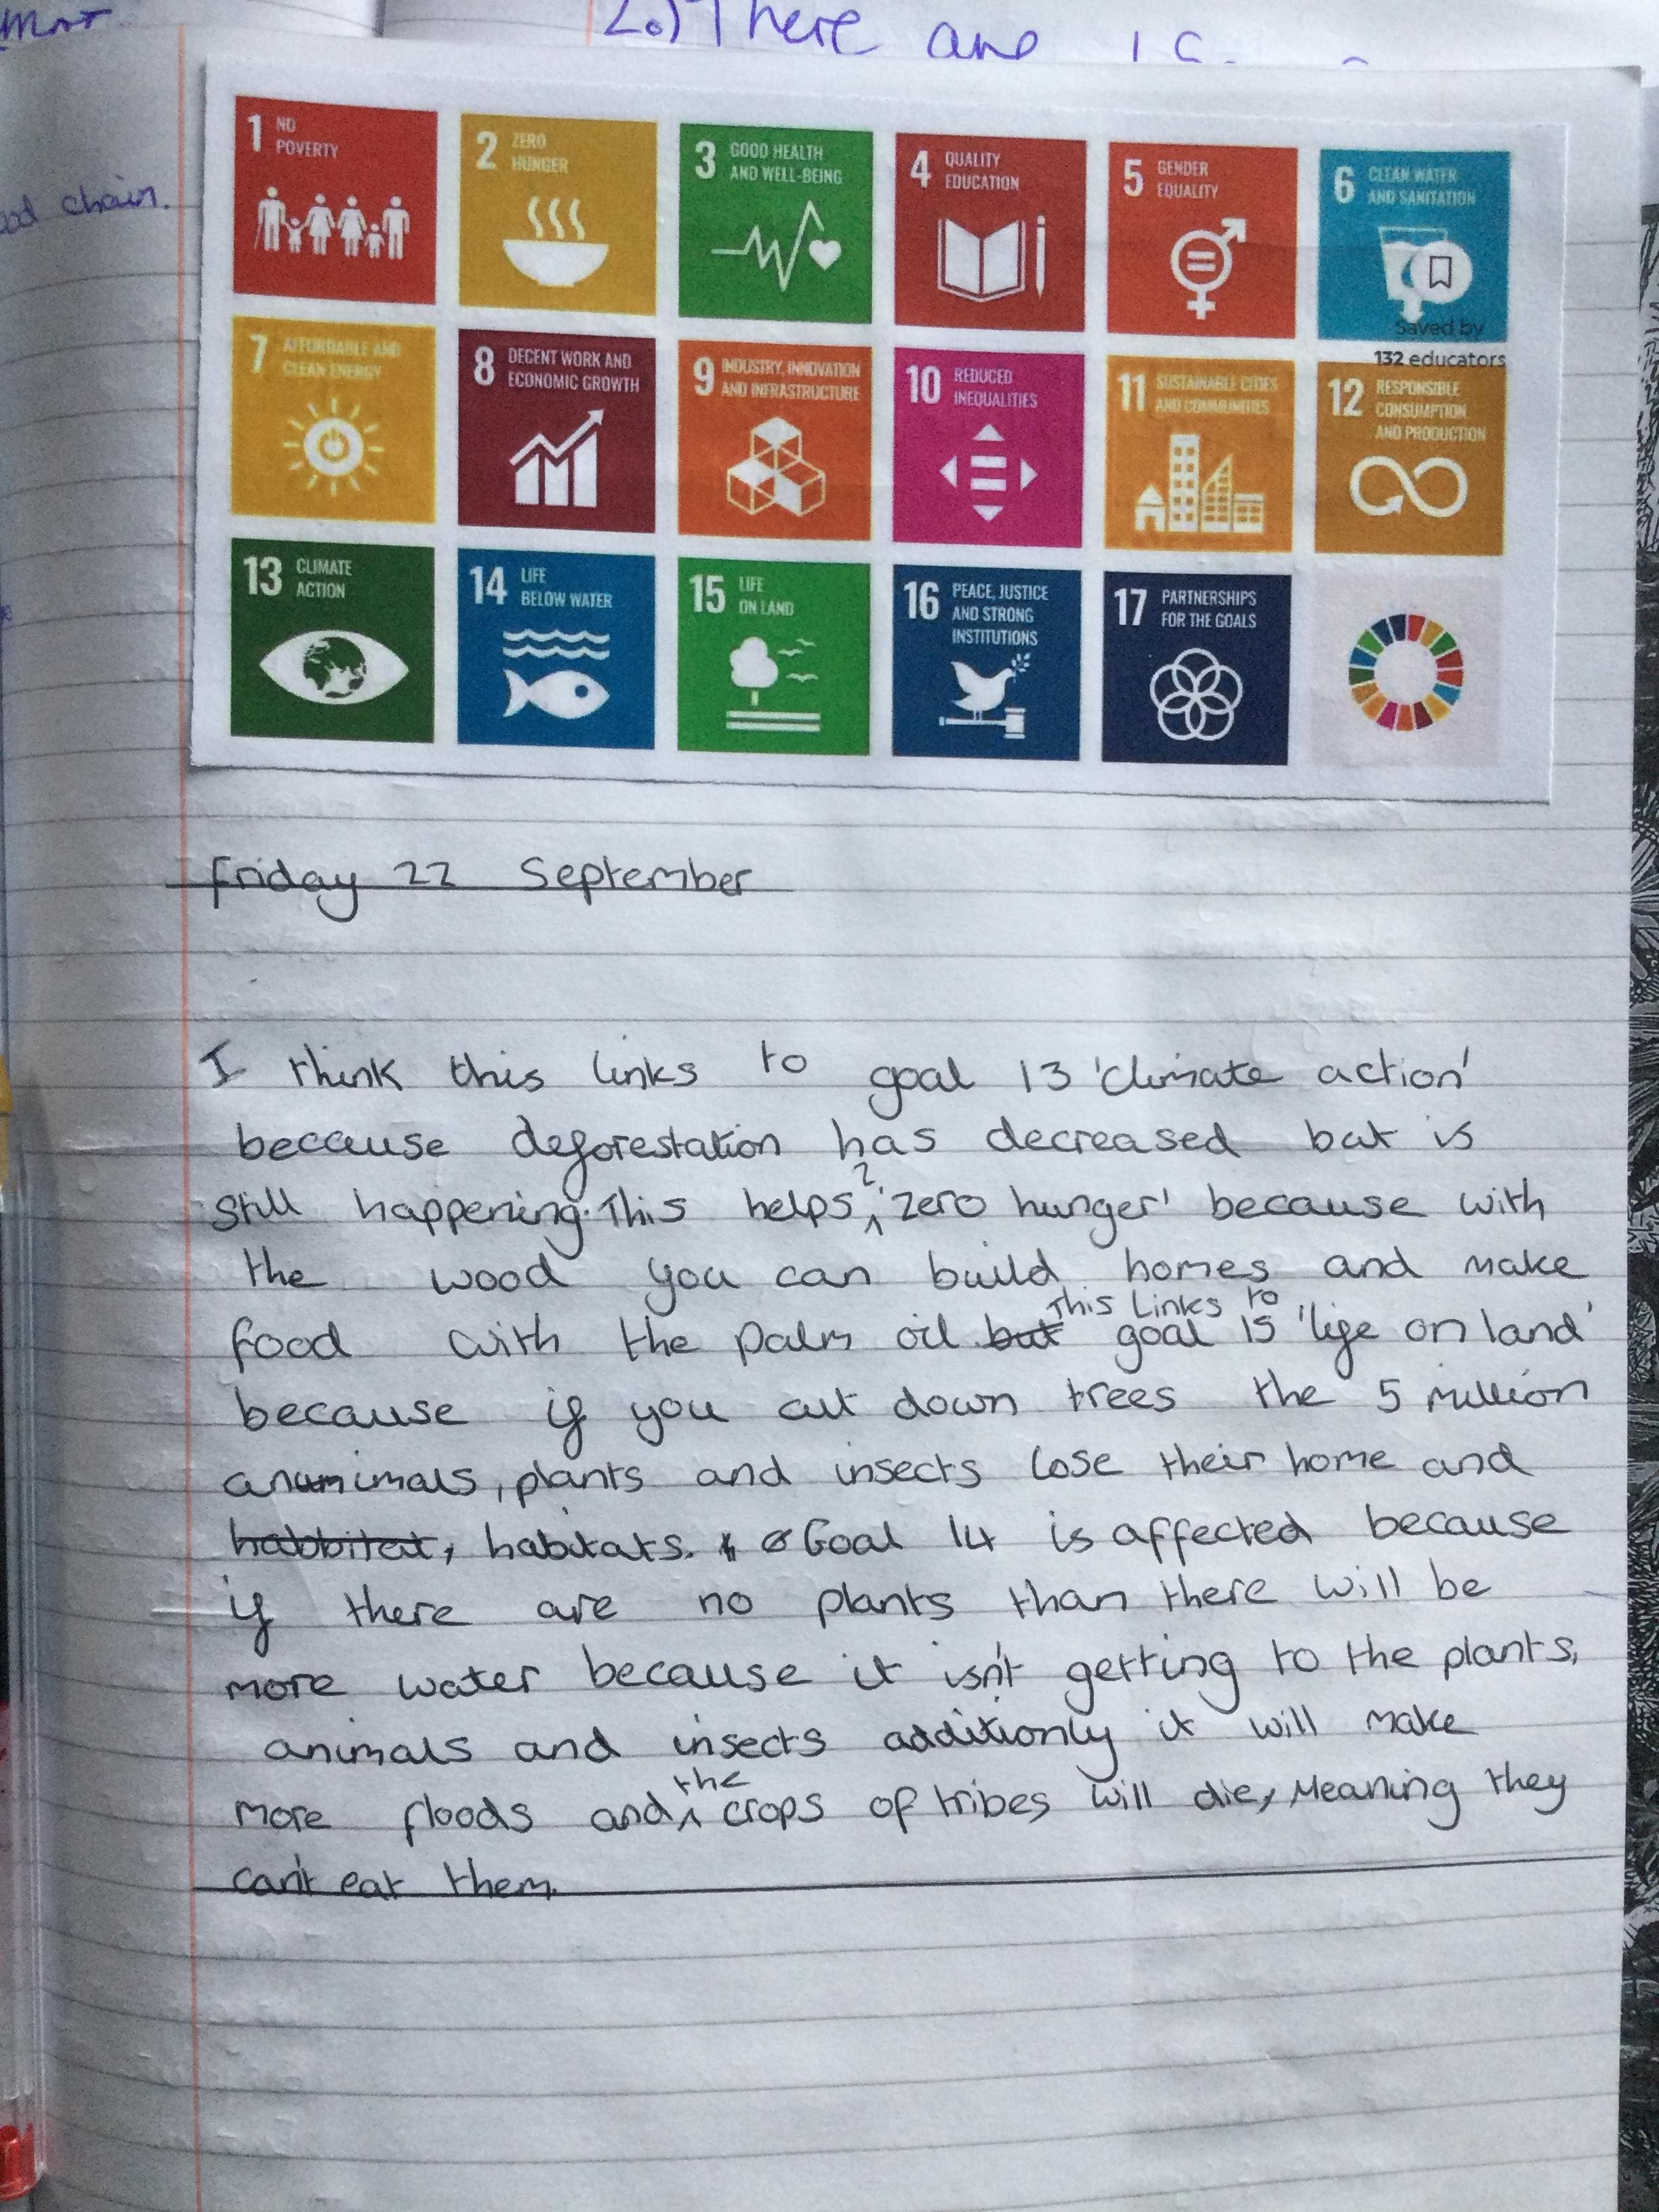 2.) There are
food chain.
1 NO POVERTY
2 ZERO HUNGER
3 GOOD HEALTH AND WELL-BEING
4 QUALITY EDUCATION
5 GENDER EQUALITY
6 CLEAN WATER AND SANITATION
Saved by
132 educators
7 AFFORDABLE AND CLEAN ENERGY
8 DECENT WORK AND ECONOMIC GROWTH
9 INDUSTRY, INNOVATION AND INFRASTRUCTURE
10 REDUCED INEQUALITIES
11 SUSTAINABLE CITIES AND COMMUNITIES
12 RESPONSIBLE CONSUMPTION AND PRODUCTION
13 CLIMATE ACTION
14 LIFE BELOW WATER
15 LIFE ON LAND
16 PEACE, JUSTICE AND STRONG INSTITUTIONS
17 PARTNERSHIPS FOR THE GOALS
Friday 22 September
I think this links to goal 13 'climate action'
because deforestation has decreased but is
still happening. This helps 2 'zero hunger' because with
the wood you can build homes and make
food with the palm oil but This links to goal 15 'life on land'
because if you cut down trees the 5 million
anumimals, plants and insects lose their home and
habbitat, habitats. Goal 14 is affected because
if there are no plants than there will be
more water because it isn't getting to the plants,
animals and insects additionly it will make
more floods and the crops of tribes will die, meaning they
can't eat them.